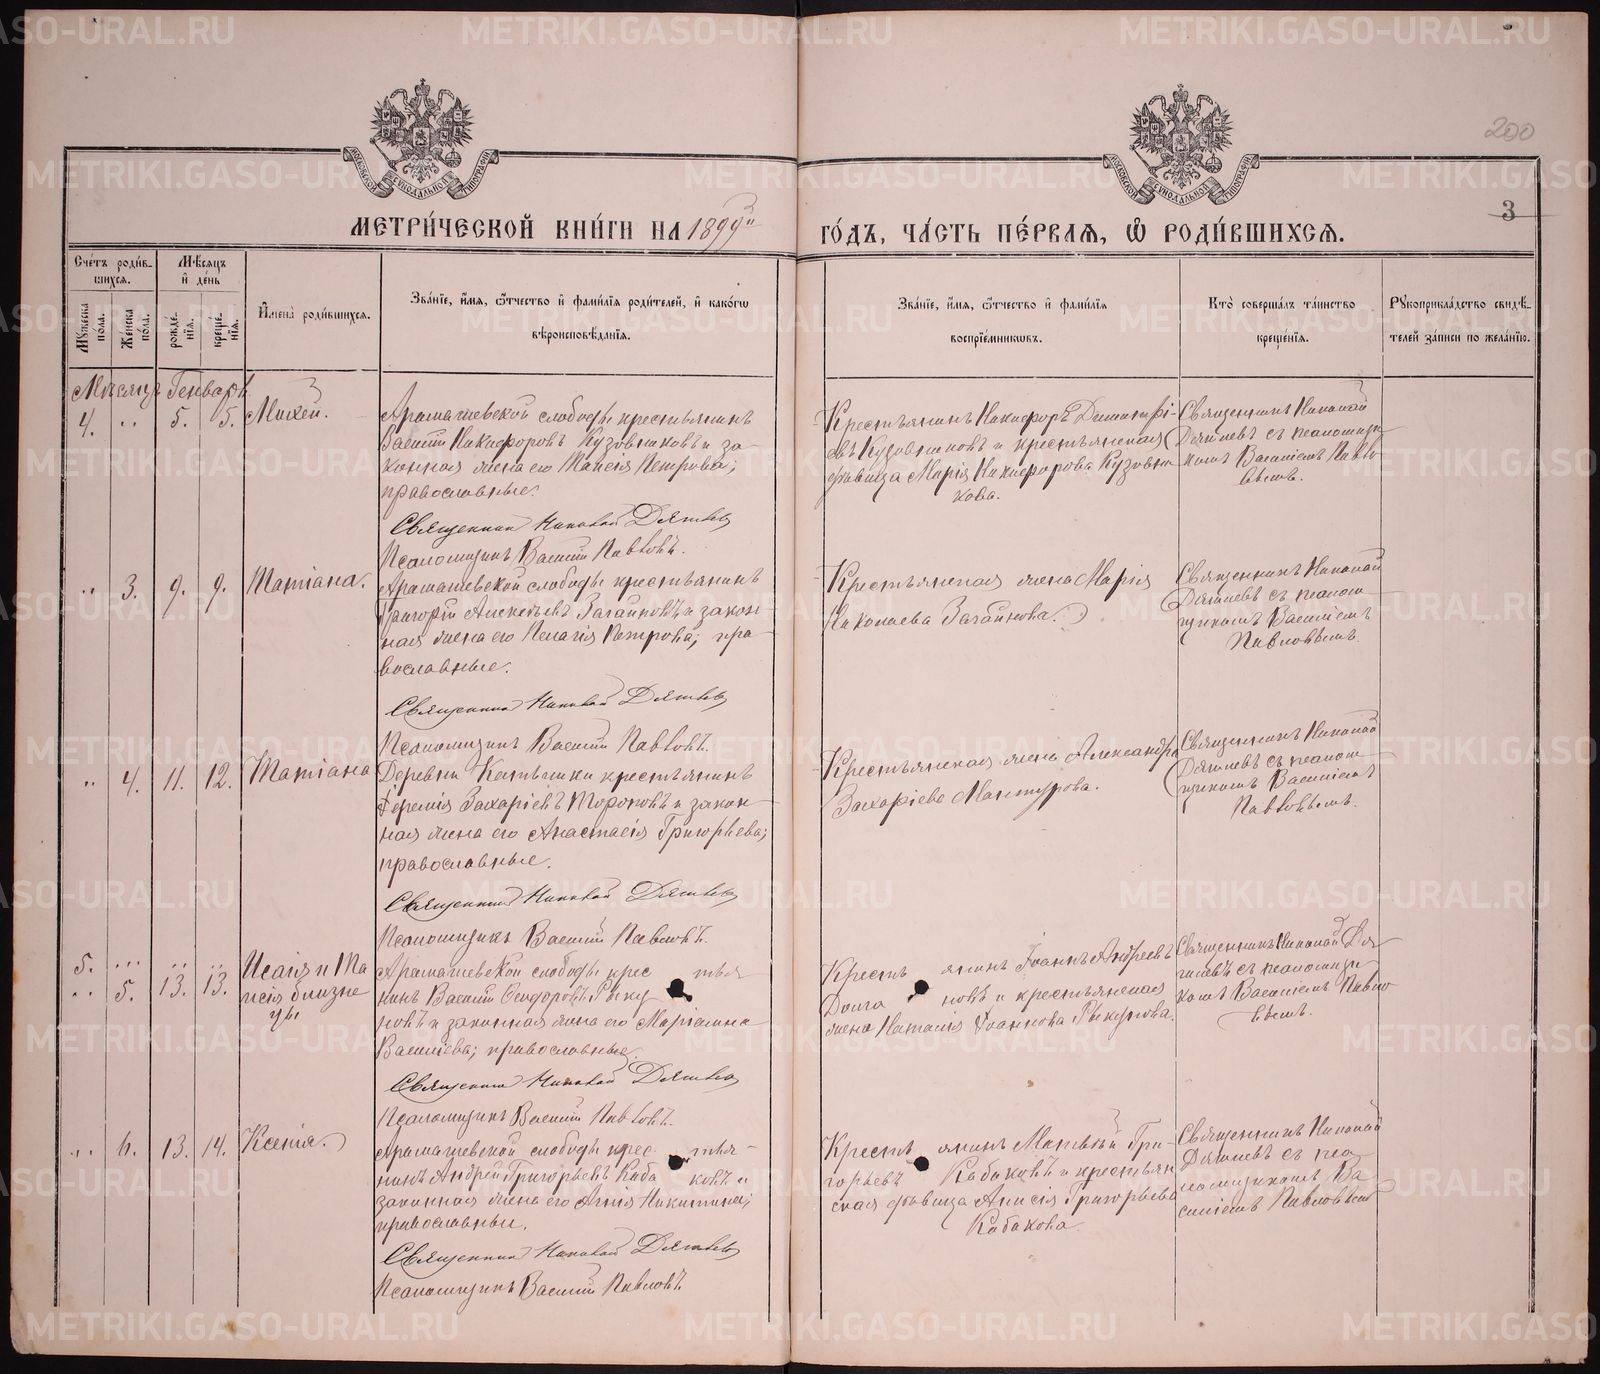 200
3
МОСКОВСКОЙ СѴНОДАЛЬНОЙ ТИПОГРАФІИ
МОСКОВСКОЙ СѴНОДАЛЬНОЙ ТИПОГРАФІИ
МЕТРИ́ЧЕСКОЙ КНИ́ГИ НА 1899й
ГО́ДЪ, ЧА́СТЬ ПЕ́РВАЯ, Ѽ РОДИ́ВШИХСЯ.
Сче́тъ роди́в-
шихся.
Мѣ́сяцъ
и҆ де́нь
Мꙋ́жеска
по́ла.
Же́нска
по́ла.
рожде́-
нїя.
креще́-
нїя.
И҆мена̀ роди́вшихся.
Зва́нїе, и҆́мя, ѻ҆́тчество и҆ фами́лїя роди́телей, и҆ како́гѡ
вѣроисповѣ́данїя.
Зва́нїе, и҆́мя, ѻ҆́тчество и҆ фами́лїя
воспрїе́мникѡвъ.
Кто̀ соверша́лъ та́инство
креще́нїя.
Рꙋкоприкла́дство свидѣ́-
телей за́писи по жела́нїю.
Мѣсяцъ Генварь
4. „ 5. 5. Михей.
Арамашевской слободы крестьянинъ
Василій Никифоровъ Кузовниковъ и за-
конная жена его Таисія Петрова;
православные.
Священникъ Николай Дягилевъ
Псаломщикъ Василій Павловъ.
Крестьянинъ Никифоръ Димитрі-
евъ Кузовниковъ и крестьянская
дѣвица Марія Никифорова Кузовни-
кова.
Священникъ Николай
Дягилевъ съ псаломщи-
комъ Василіемъ Павло-
вымъ.
„ 3. 9. 9. Татіана.
Арамашевской слободы крестьянинъ
Григорій Алексѣевъ Загайновъ и закон-
ная жена его Пелагія Петрова; пра-
вославные.
Священникъ Николай Дягилевъ
Псаломщикъ Василій Павловъ.
Крестьянская жена Марія
Николаева Загайнова.
Священникъ Николай
Дягилевъ съ псалом-
щикомъ Василіемъ
Павловымъ.
„ 4. 11. 12. Татіана
Деревни Катышки крестьянинъ
Іеремія Захаріевъ Тороповъ и закон-
ная жена его Анастасія Григорьева;
православные.
Священникъ Николай Дягилевъ
Псаломщикъ Василій Павловъ.
Крестьянская жена Александра
Захаріева Мантурова.
Священникъ Николай
Дягилевъ съ псалом-
щикомъ Василіемъ
Павловымъ.
5. „
„ 5. 13. 13. Исаія и Та
исія близне
цы
Арамашевской слободы крес тья
нинъ Василій Сидоровъ Рыку
новъ и законная жена его Маріамна
Василіева; православные.
Священникъ Николай Дягилевъ
Псаломщикъ Василій Павловъ.
Кресть янинъ Іоаннъ Андреевъ
Долга новъ и крестьянская
жена Наталія Іоаннова Рыкунова.
Священникъ Николай Дя-
гилевъ съ псаломщи-
комъ Василіемъ Павло
вымъ.
„ 6. 13. 14. Ксенія.
Арамашевской слободы крес- тья-
нинъ Андрей Григорьевъ Каба ковъ и
законная жена его Анна Никитина;
православные.
Священникъ Николай Дягилевъ
Псаломщикъ Василій Павловъ
Кресть янинъ Матвѣй Гри-
горьевъ Кабаковъ и крестьян
ская дѣвица Анисія Григорьева
Кабакова.
Священникъ Николай
Дягилевъ съ пса-
ломщикомъ Ва-
силіемъ Павловымъ
METRIKI.GASO-URAL.RU